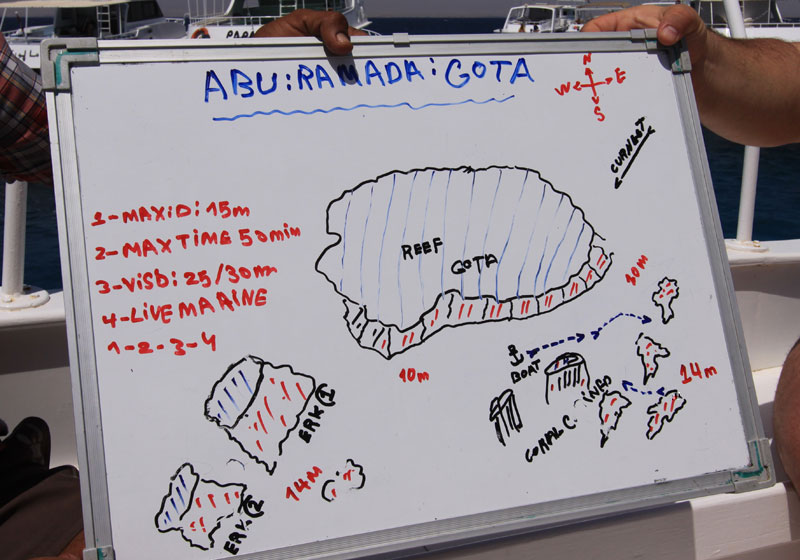 ABU:RAMADA:GOTA
N
W E
S
CURNEST
1-MAXID: 15m
2-MAX TIME 50min
3-VISD: 25/30m
4-LIVE MARINE
1-2-3-4
REEF
GOTA
10m
10m
BOAT
14m
CORAL C
ERK ①
14M
ERK ②